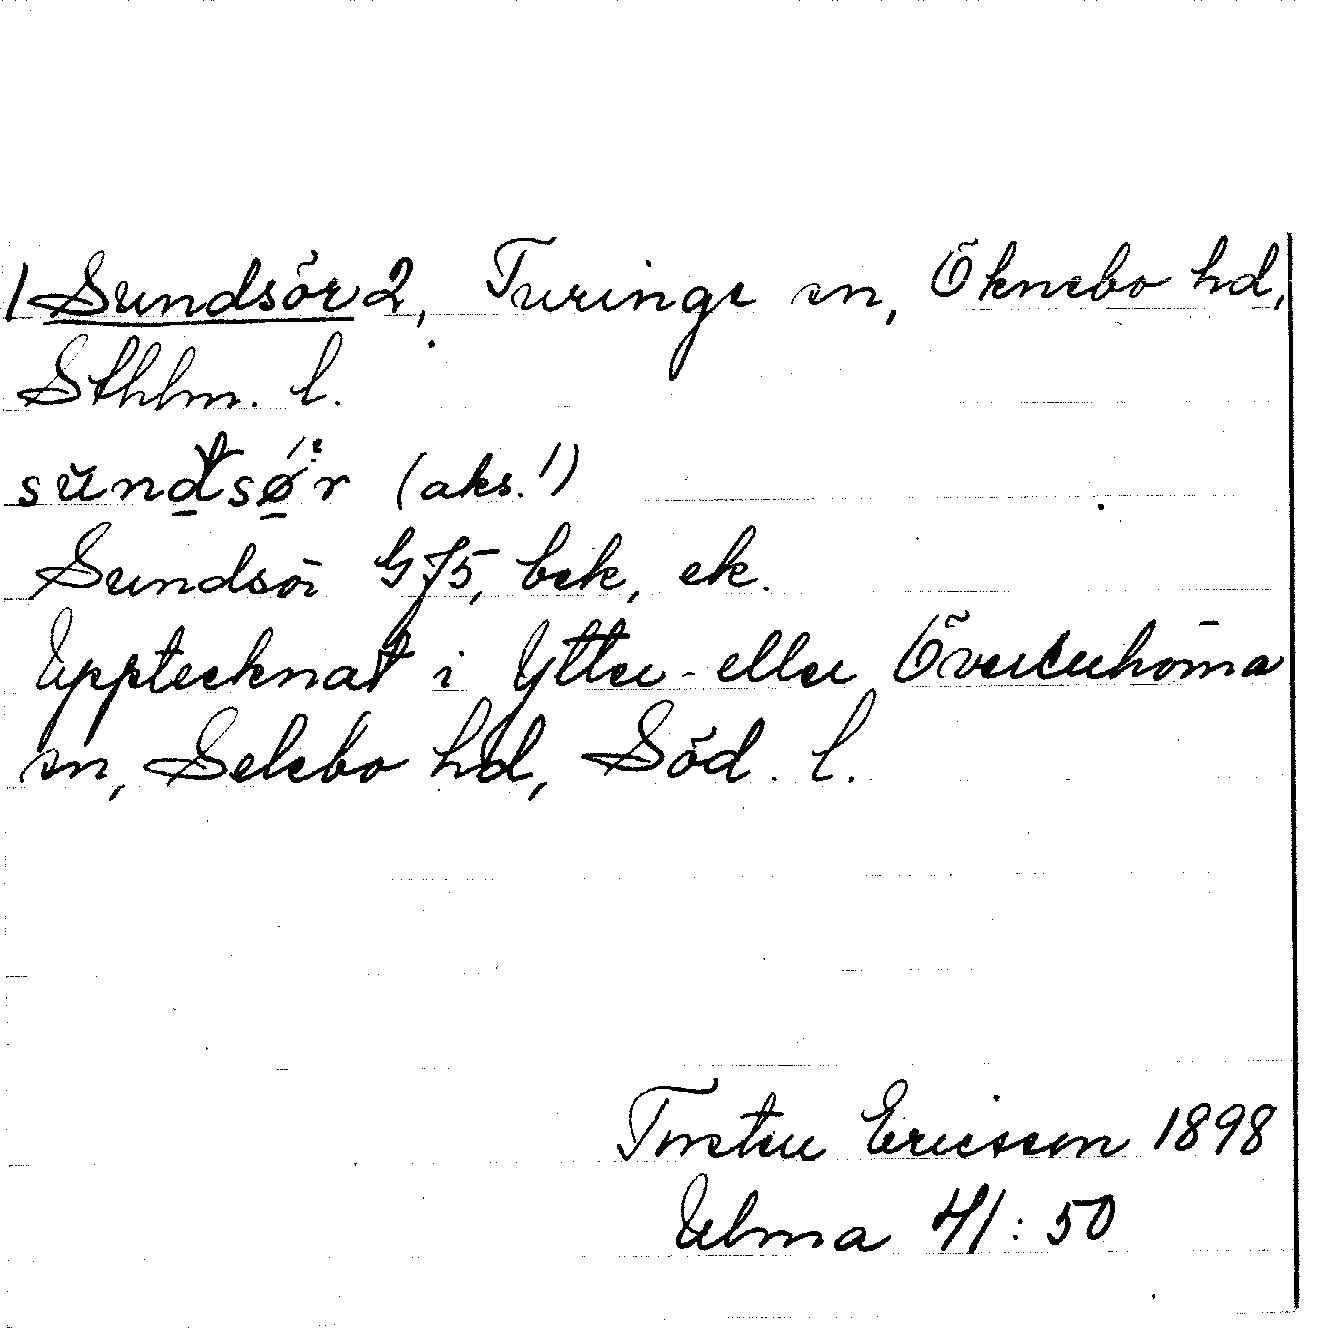 1 Sundsör 2, Turinge sn, Öknebo hd,
Sthlm. l.
sŭndsǿ̱r (aks.!)
Sundsör G 75, bek, ek.
Upptecknat i Ytter- eller Överenhörna
sn, Selebo hd, Söd. l.
Torsten Ericsson 1898
Ulma 41:50